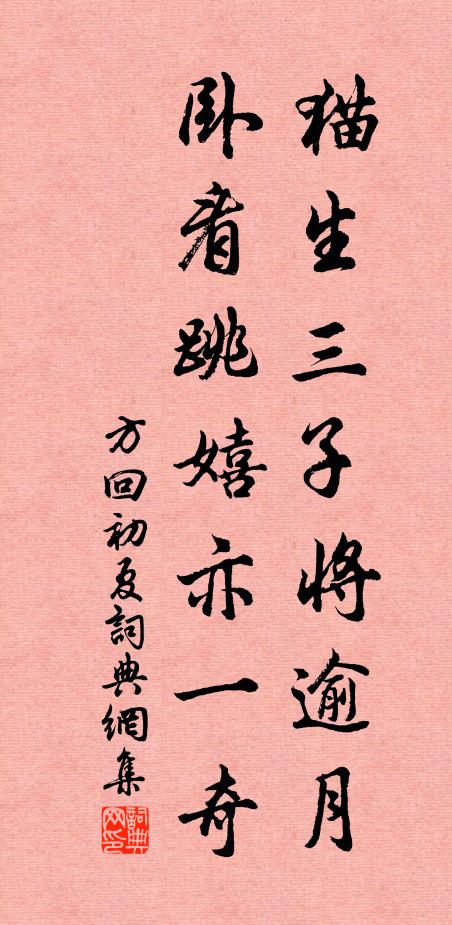 猫生三子将逾月
卧看跳嬉亦一奇
方回初夏詞典網集
詞典网印